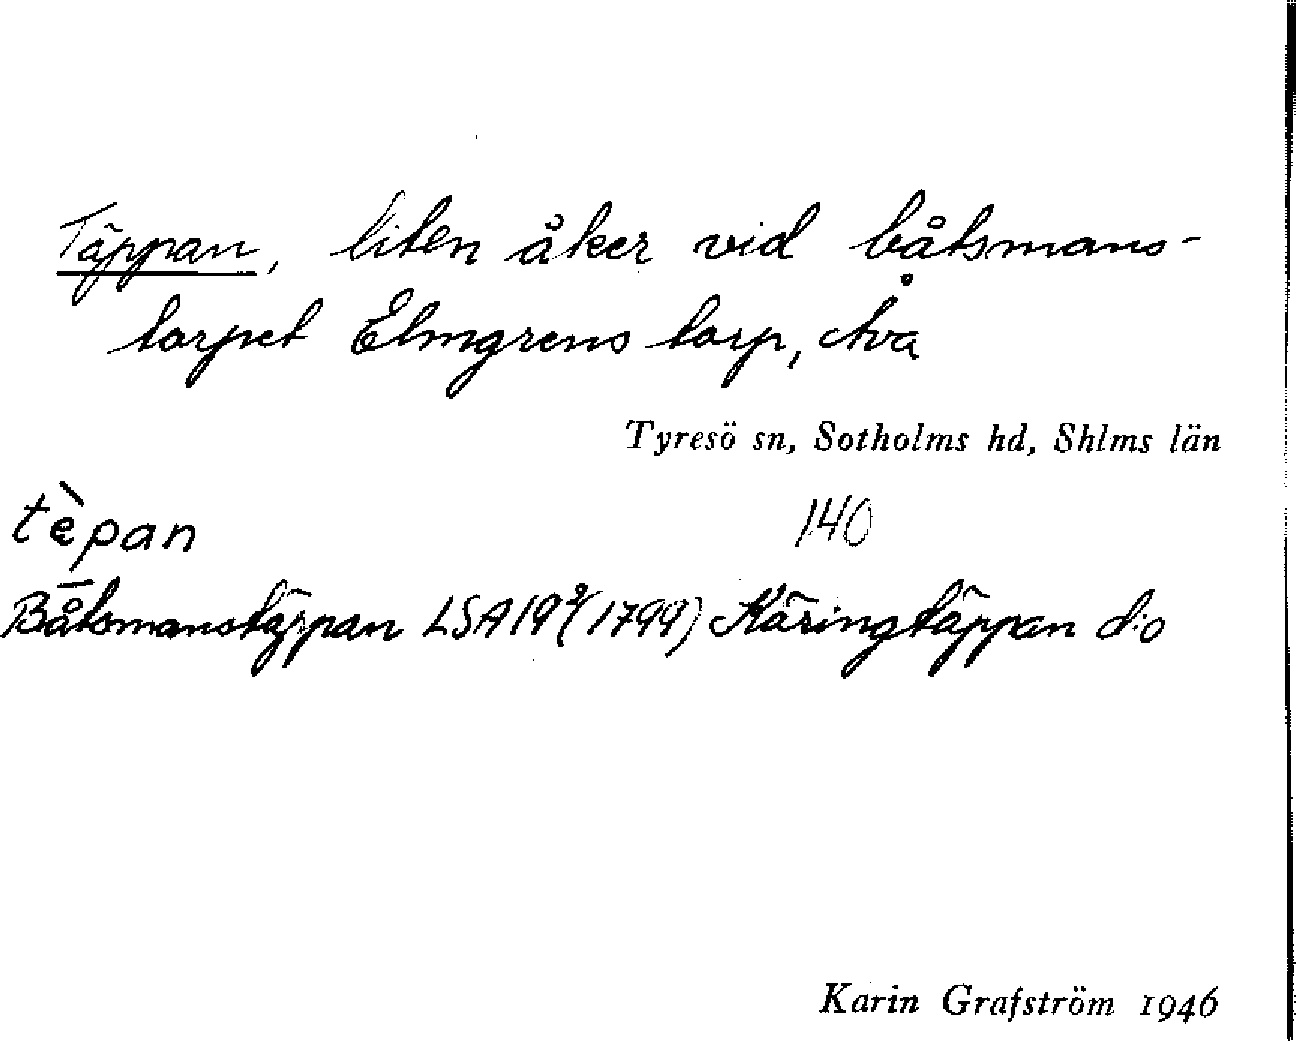 Täppan, liten åker vid båtsmans-
torpet Elmgrens torp, Åva
Tyresö sn, Sotholms hd, Shlms län
tèpan 140
Båtsmanstäppan LSA 19²(1799) Käringtäppan d:o
Karin Grafström 1946